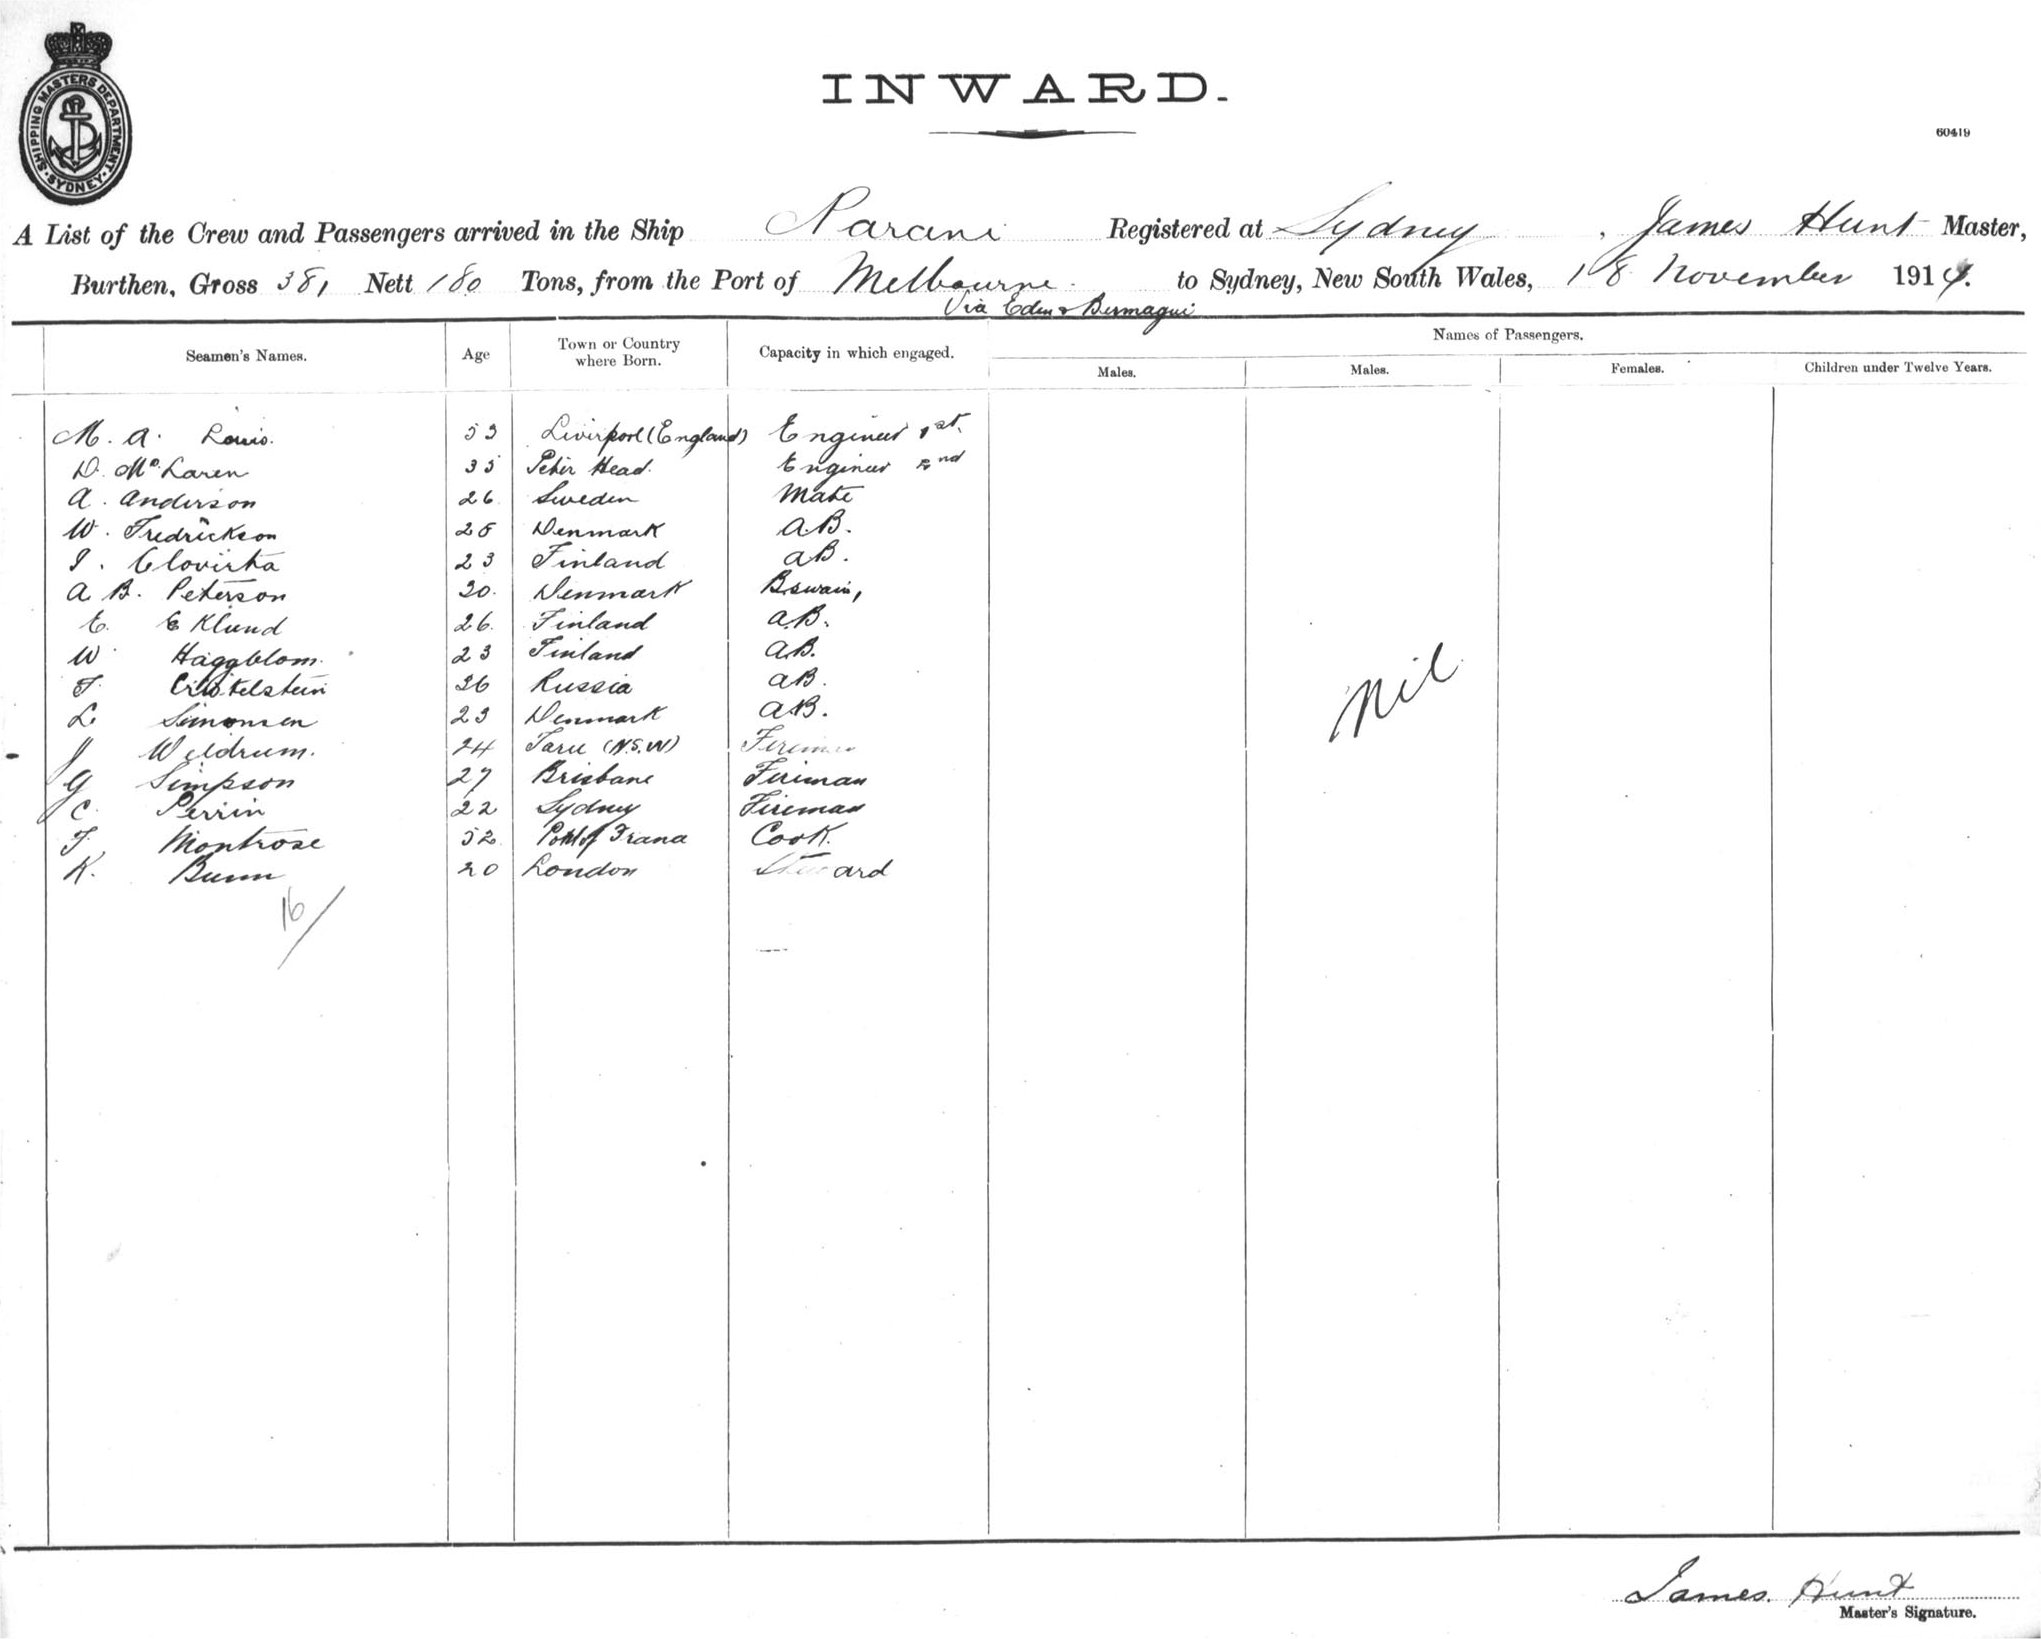 SHIPPING MASTERS DEPARTMENT
SYDNEY
INWARD.
60419
A List of the Crew and Passengers arrived in the Ship Narani Registered at Sydney, James Hunt Master,
Burthen, Gross 381 Nett 180 Tons, from the Port of Melbourne to Sydney, New South Wales, 18 November 1914.
Via Eden & Bermagui
Names of Passengers.
Seamen's Names. Age Town or Country where Born. Capacity in which engaged. Males. Males. Females. Children under Twelve Years.
M. A. Louis. 53 Liverpool (England) Engineer 1st.
D. McLaren 35 Peter Head. Engineer 2nd
A. Anderson 26 Sweden Mate
W. Fredrickson Denmark A.B.
23 Finland A.B.
A B. Peterson Denmark Bswain,
E. Eklund 26 Finland A.B.
W Häggblom 23 Finland A.B.
F. Russia A.B.
L. Simonsen 23 Denmark A.B.
J Weldrum. 24 Taree (N.S.W) Fireman
G Simpson 27 Brisbane Fireman
C. Perrin 22 Sydney Fireman
F. Montrose 52 Cook.
K. Bunn 20 London Steward
Nil
16/
James. Hunt
Master's Signature.